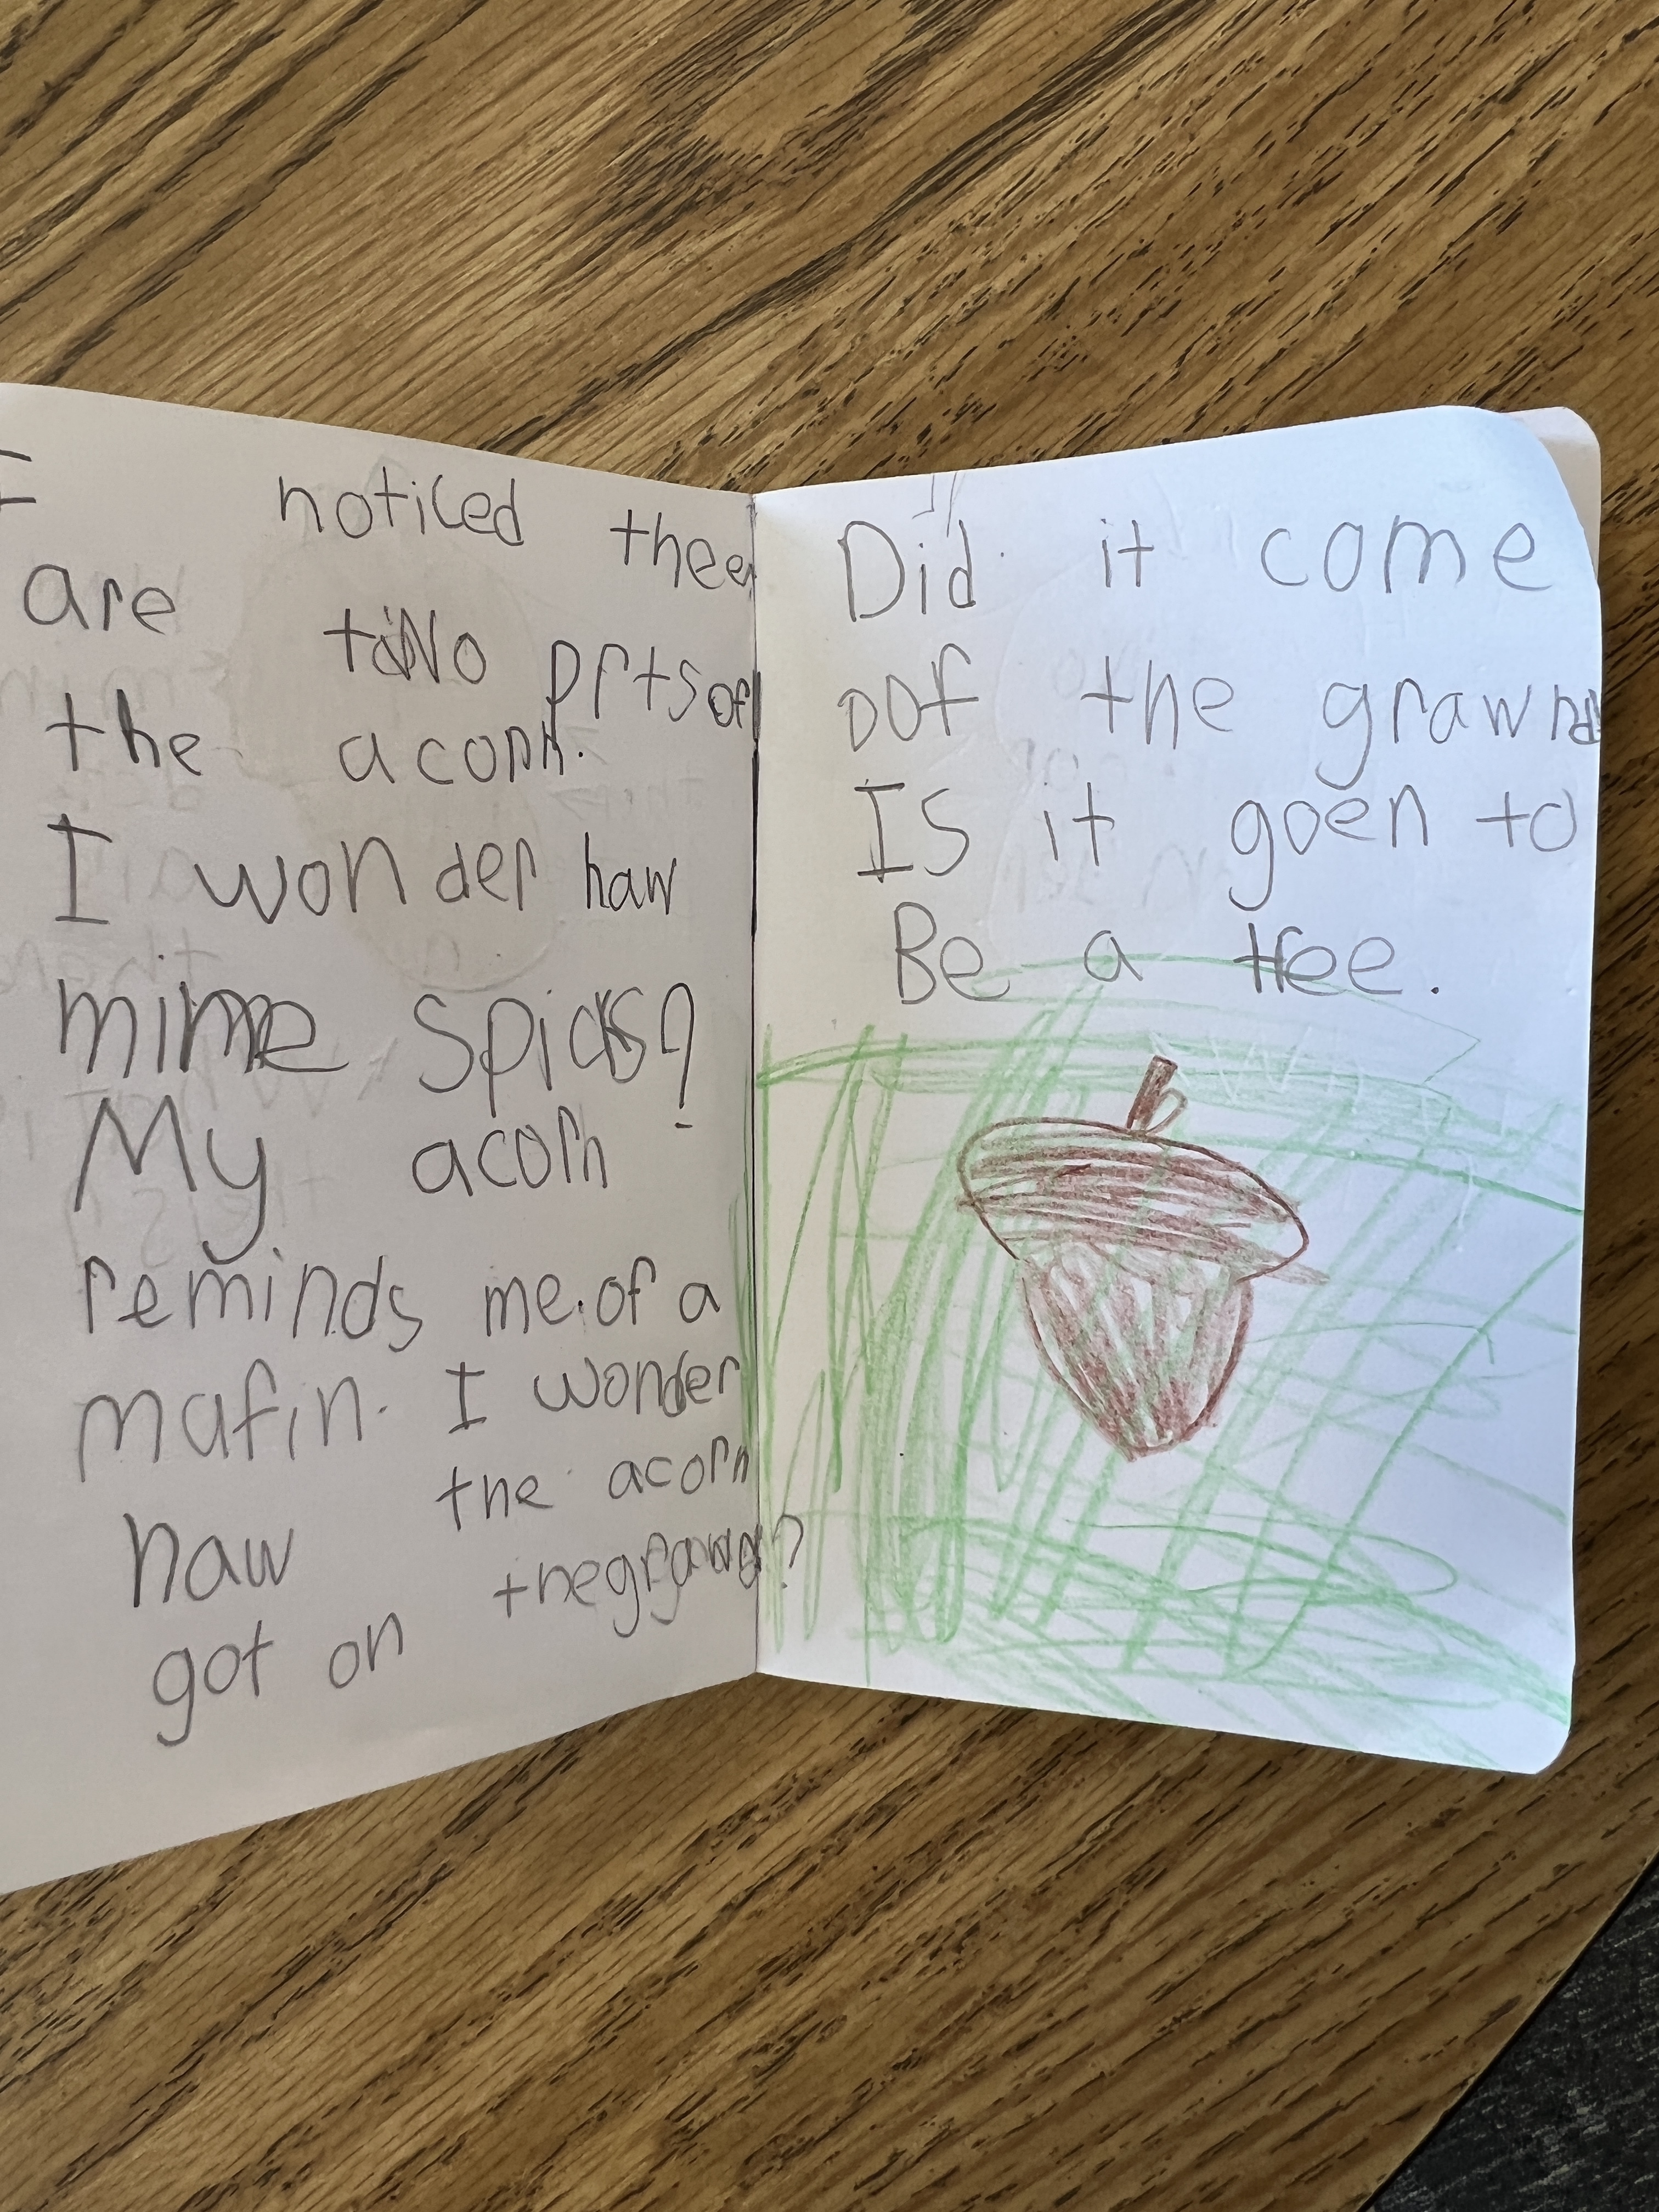 I noticed theer
are two prts of
the acorn.
I wonder haw
mime spicks?
My acorn
reminds me.of a
mafin. I wonder
haw the acorn
got on the grawnd?
Did it come
oof the grawnd
Is it goen to
Be a tree.